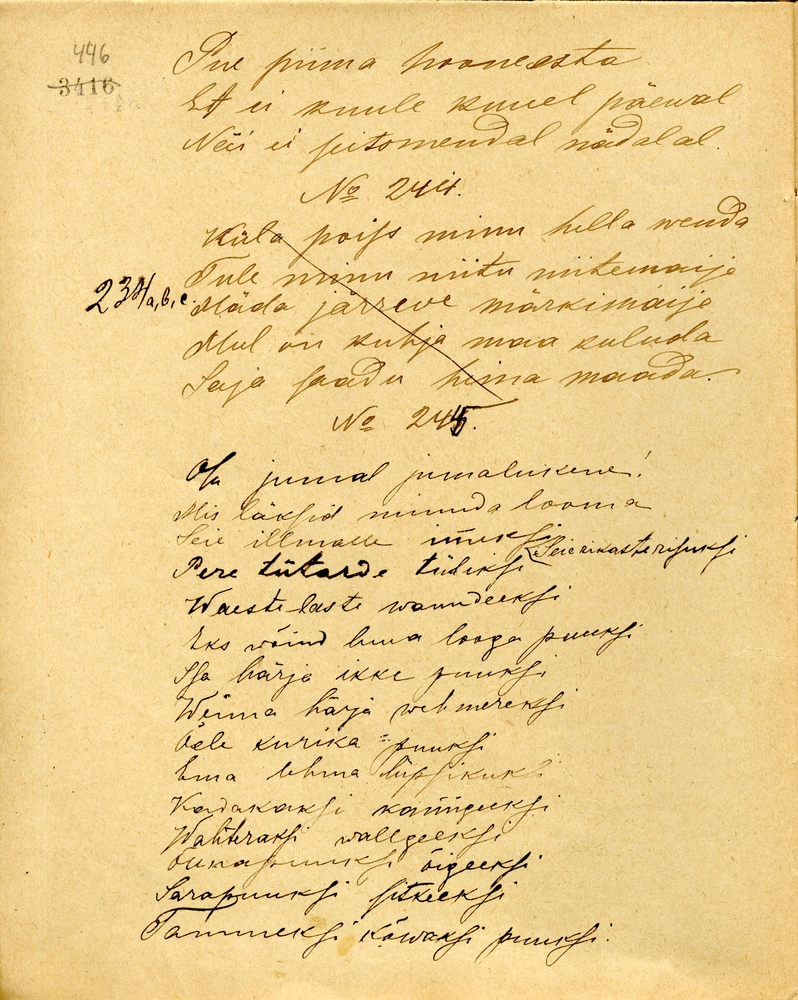 446
3416
Pue piima hooneesta
Et ei kuule kuuel päewal
Näi ei seitsmendal nädalal.
No 244.
Küla poiss minu hella wenda
Tule minu niitu niitemaije
234/a,b,c. Mäda järreve märkimaije
Mul on kuhja maa kuluda
Saja saadu heina maada.
No 245.
Oh jumal jumalukene!
Mis läksid minuda looma
Seie illmalle imeksi
Seie rikaste risuksi
Pere tütarde tüliksi
Waeste-laste waundeeksi
Eks võind luua looga puuksi
Isa härja ikke puuksi
Weima härja wehmereksi
Õele kurika puuksi
Ema lehma lüpsikuksi
Kadakaksi kangeeksi
Wahteraksi wallgeeksi
Õunapuuksi õigeeksi
Sarapuuksi sitkeeksi
Tammeksi kõwaksi puuksi.